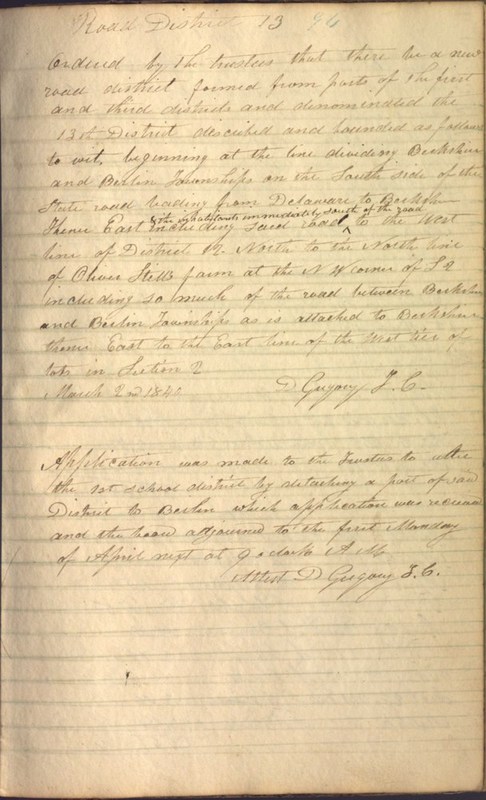 Road District 13 96
Ordered by the trustees that there be a new
road district formed from parts of the first
and third districts and denominated the
13th District discribed and bounded as follows
to wit, beginning at the line dividing Berkshire
and Berlin Townships on the South side of the
State road leading from Delaware to Berkshire
& the inhabitants immediately south of the road
thence East including said road to the West
line of District 12. North to the North line
of Oliver Still's farm at the N W corner of S 2
including so much of the road between Berkshire
and Berlin Townships as is attached to Berkshire
thence East to the East line of the West tier of
lots in Section 2
March 2nd 184 D Gregory T. C.
Application was made to the Trustees to alter
the 1st school district by detaching a part of said
District to Berlin which application was
and the board adjourned to the first Monday
of April next at 9 o clock A M.
Attest D Gregory T. C.